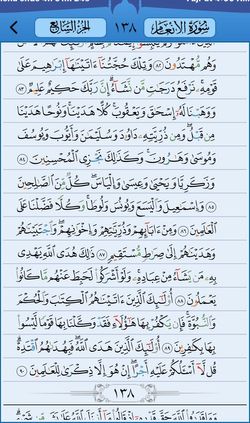 سورة الأنعام ١٣٨ الجزء السابع
وَهُم مُّهْتَدُونَ ٨٢ وَتِلْكَ حُجَّتُنَا ءَاتَيْنَٰهَا إِبْرَٰهِيمَ عَلَىٰ
قَوْمِهِۦ نَرْفَعُ دَرَجَٰتٍ مَّن نَّشَآءُ إِنَّ رَبَّكَ حَكِيمٌ عَلِيمٌ ٨٣
وَوَهَبْنَا لَهُۥٓ إِسْحَٰقَ وَيَعْقُوبَ كُلًّا هَدَيْنَا وَنُوحًا هَدَيْنَا
مِن قَبْلُ وَمِن ذُرِّيَّتِهِۦ دَاوُۥدَ وَسُلَيْمَٰنَ وَأَيُّوبَ وَيُوسُفَ
وَمُوسَىٰ وَهَٰرُونَ وَكَذَٰلِكَ نَجْزِى ٱلْمُحْسِنِينَ ٨٤
وَزَكَرِيَّا وَيَحْيَىٰ وَعِيسَىٰ وَإِلْيَاسَ كُلٌّ مِّنَ ٱلصَّٰلِحِينَ
٨٥ وَإِسْمَٰعِيلَ وَٱلْيَسَعَ وَيُونُسَ وَلُوطًا وَكُلًّا فَضَّلْنَا عَلَى
ٱلْعَٰلَمِينَ ٨٦ وَمِنْ ءَابَآئِهِمْ وَذُرِّيَّٰتِهِمْ وَإِخْوَٰنِهِمْ وَٱجْتَبَيْنَٰهُمْ
وَهَدَيْنَٰهُمْ إِلَىٰ صِرَٰطٍ مُّسْتَقِيمٍ ٨٧ ذَٰلِكَ هُدَى ٱللَّهِ يَهْدِى
بِهِۦ مَن يَشَآءُ مِنْ عِبَادِهِۦ وَلَوْ أَشْرَكُوا۟ لَحَبِطَ عَنْهُم مَّا كَانُوا۟
يَعْمَلُونَ ٨٨ أُو۟لَٰٓئِكَ ٱلَّذِينَ ءَاتَيْنَٰهُمُ ٱلْكِتَٰبَ وَٱلْحُكْمَ
وَٱلنُّبُوَّةَ فَإِن يَكْفُرْ بِهَا هَٰٓؤُلَآءِ فَقَدْ وَكَّلْنَا بِهَا قَوْمًا لَّيْسُوا۟
بِهَا بِكَٰفِرِينَ ٨٩ أُو۟لَٰٓئِكَ ٱلَّذِينَ هَدَى ٱللَّهُ فَبِهُدَىٰهُمُ ٱقْتَدِهْ
قُل لَّآ أَسْـَٔلُكُمْ عَلَيْهِ أَجْرًا إِنْ هُوَ إِلَّا ذِكْرَىٰ لِلْعَٰلَمِينَ ٩٠
١٣٨